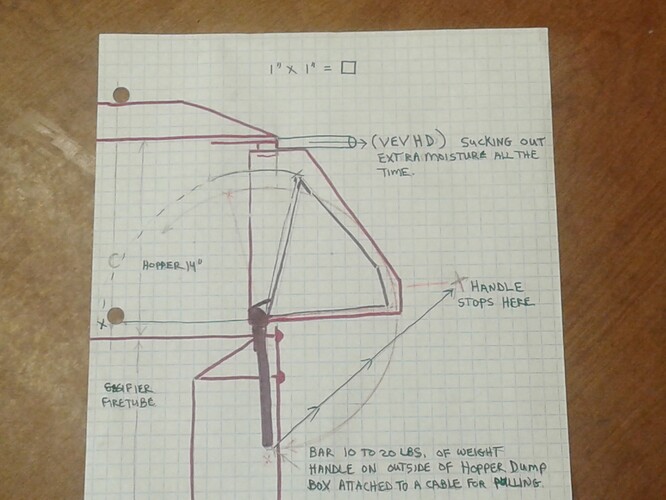 1" X 1" = □
(VEVHD) SUCKING OUT
EXTRA MOISTURE ALL THE
TIME.
HOPPER 14"
HANDLE
STOPS HERE
FIRETUBE
BAR 10 TO 20 LBS. OF WEIGHT
HANDLE ON OUTSIDE OF HOPPER DUMP
BOX ATTACHED TO A CABLE FOR PULLING.